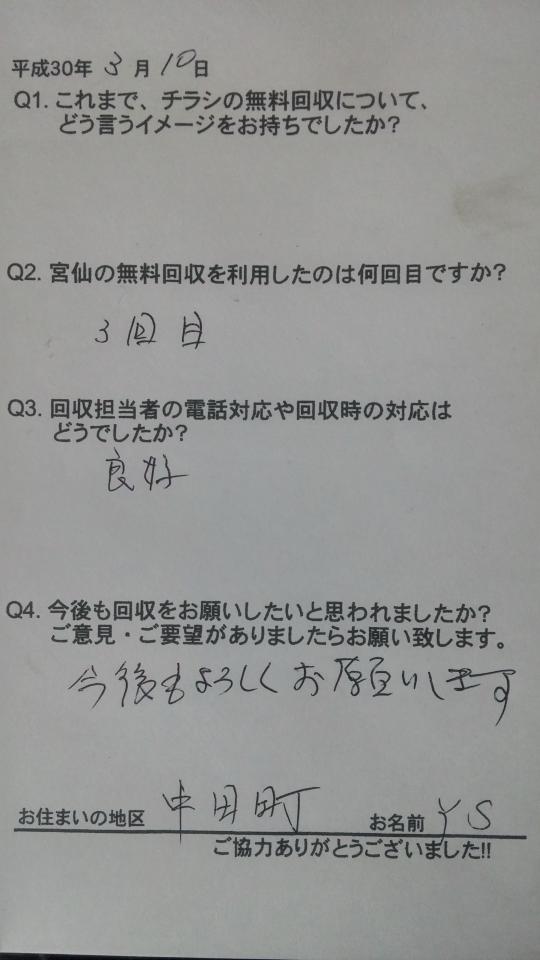 平成30年 3月10日
Q1. これまで、チラシの無料回収について、
どう言うイメージをお持ちでしたか?
Q2. 宮仙の無料回収を利用したのは何回目ですか?
3回目
Q3. 回収担当者の電話対応や回収時の対応は
どうでしたか?
良好
Q4. 今後も回収をお願いしたいと思われましたか?
ご意見・ご要望がありましたらお願い致します。
今後もよろしくお願いします
お住まいの地区 中田町 お名前 YS
ご協力ありがとうございました!!